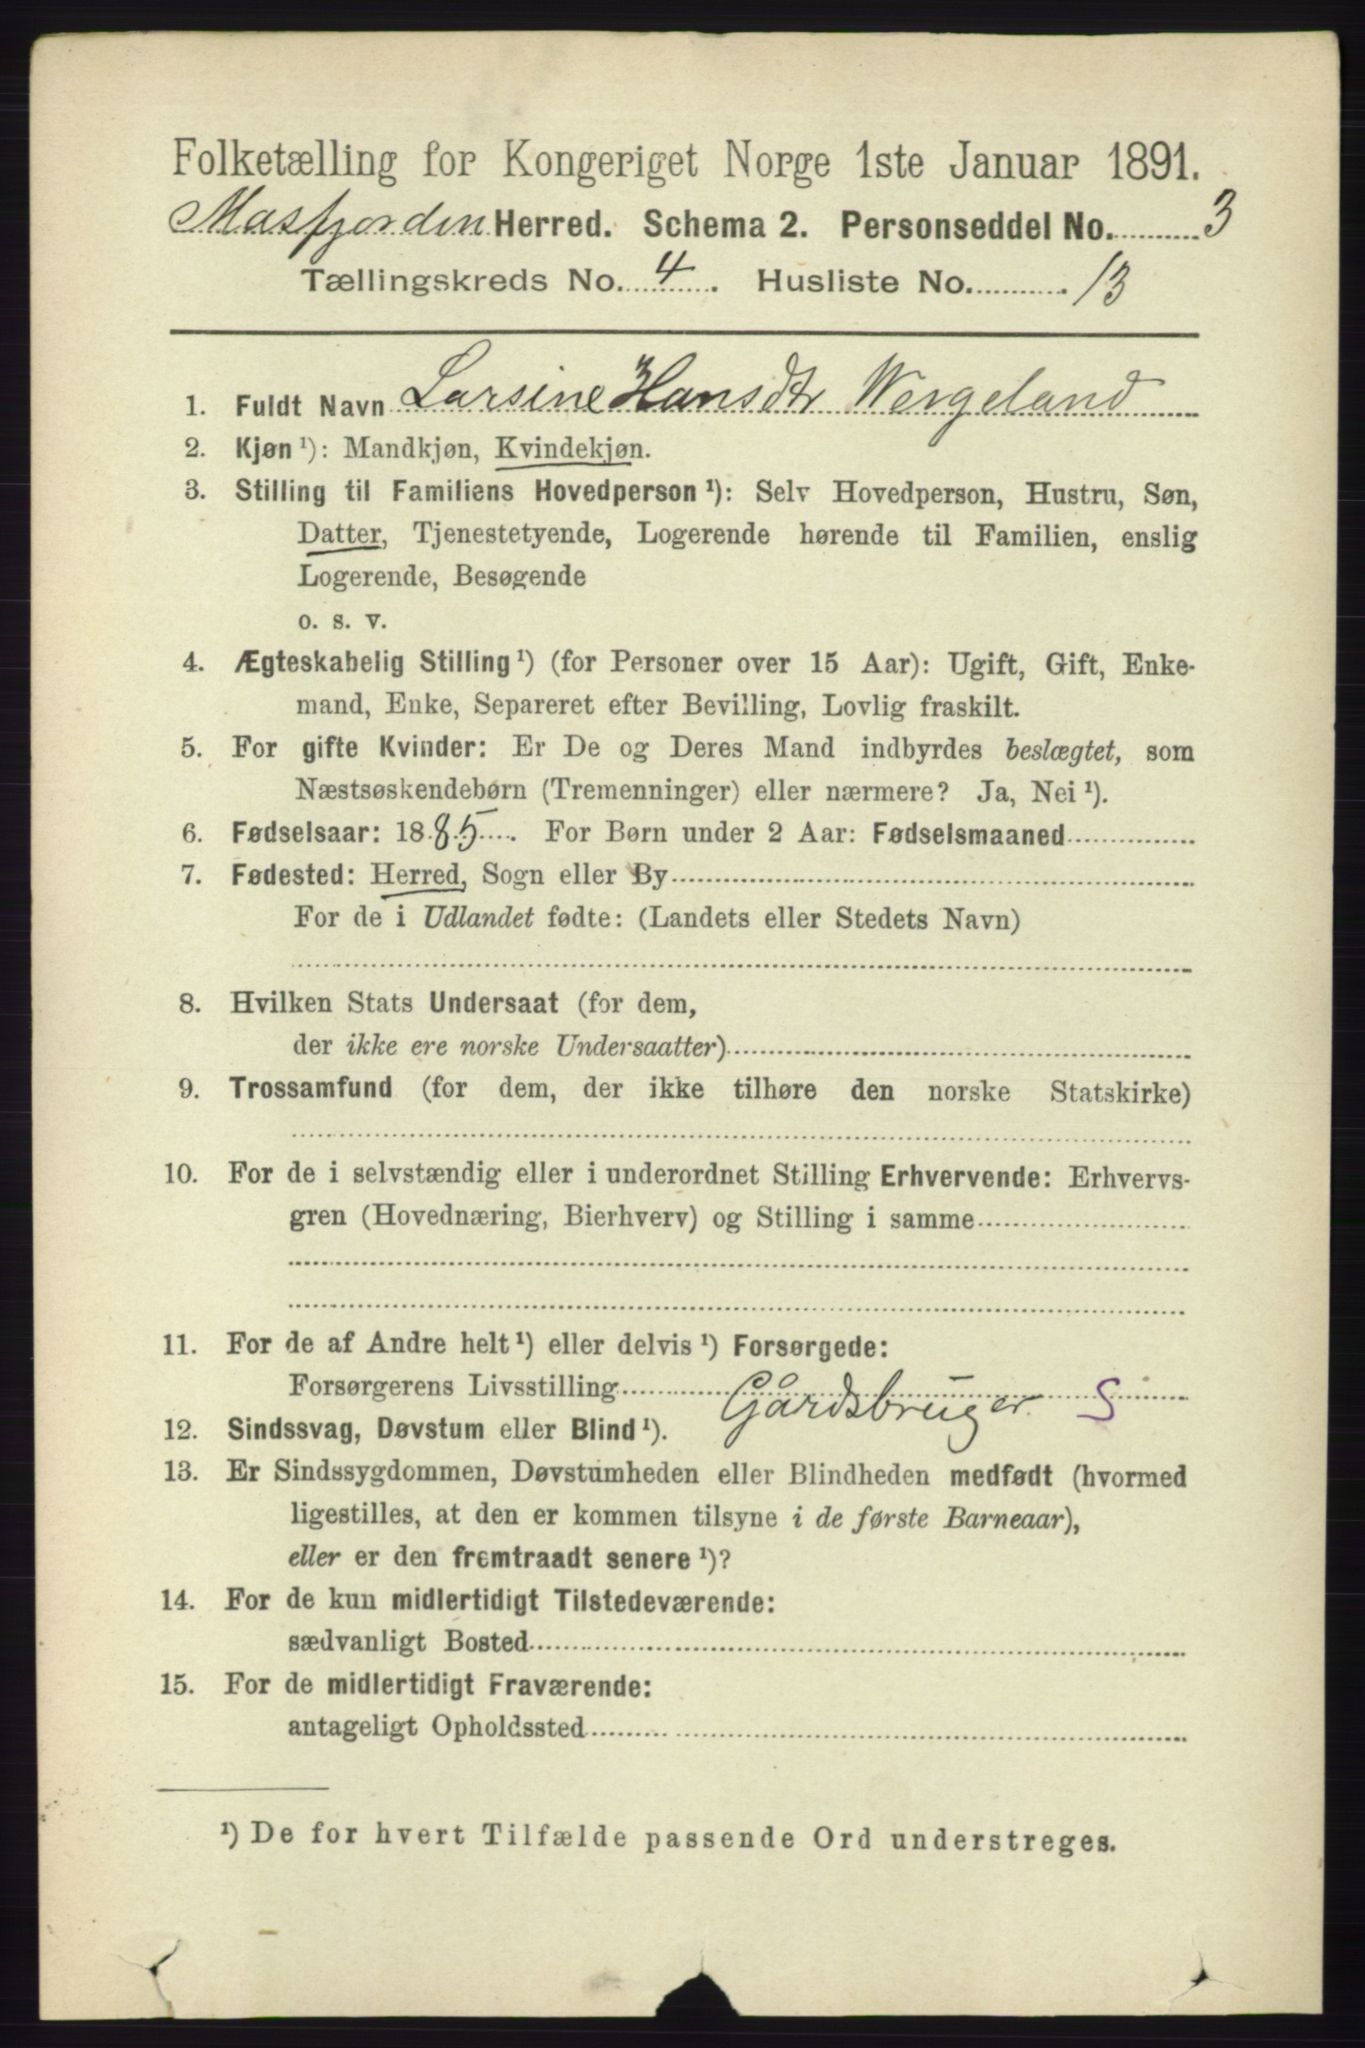 Folketælling for Kongeriget Norge 1ste Januar 1891.
Masfjorden Herred. Schema 2. Personseddel No. 3
Tællingskreds No. 4. Husliste No. 13
1. Fuldt Navn Larsine Hansdtr Wergeland
2. Kjøn ¹): Mandkjøn, Kvindekjøn.
3. Stilling til Familiens Hovedperson ¹): Selv Hovedperson, Hustru, Søn,
Datter, Tjenestetyende, Logerende hørende til Familien, enslig
Logerende, Besøgende
o. s. v.
4. Ægteskabelig Stilling ¹) (for Personer over 15 Aar): Ugift, Gift, Enke-
mand, Enke, Separeret efter Bevilling, Lovlig fraskilt.
5. For gifte Kvinder: Er De og Deres Mand indbyrdes beslægtet, som
Næstsøskendebørn (Tremenninger) eller nærmere? Ja, Nei ¹).
6. Fødselsaar: 1885. For Børn under 2 Aar: Fødselsmaaned
7. Fødested: Herred, Sogn eller By
For de i Udlandet fødte: (Landets eller Stedets Navn)
8. Hvilken Stats Undersaat (for dem,
der ikke ere norske Undersaatter)
9. Trossamfund (for dem, der ikke tilhøre den norske Statskirke)
10. For de i selvstændig eller i underordnet Stilling Erhvervende: Erhvervs-
gren (Hovednæring, Bierhverv) og Stilling i samme
11. For de af Andre helt ¹) eller delvis ¹) Forsørgede:
Forsørgerens Livsstilling Gårdsbruger S
12. Sindssvag, Døvstum eller Blind ¹).
13. Er Sindssygdommen, Døvstumheden eller Blindheden medfødt (hvormed
ligestilles, at den er kommen tilsyne i de første Barneaar),
eller er den fremtraadt senere ¹)?
14. For de kun midlertidigt Tilstedeværende:
sædvanligt Bosted
15. For de midlertidigt Fraværende:
antageligt Opholdssted
¹) De for hvert Tilfælde passende Ord understreges.